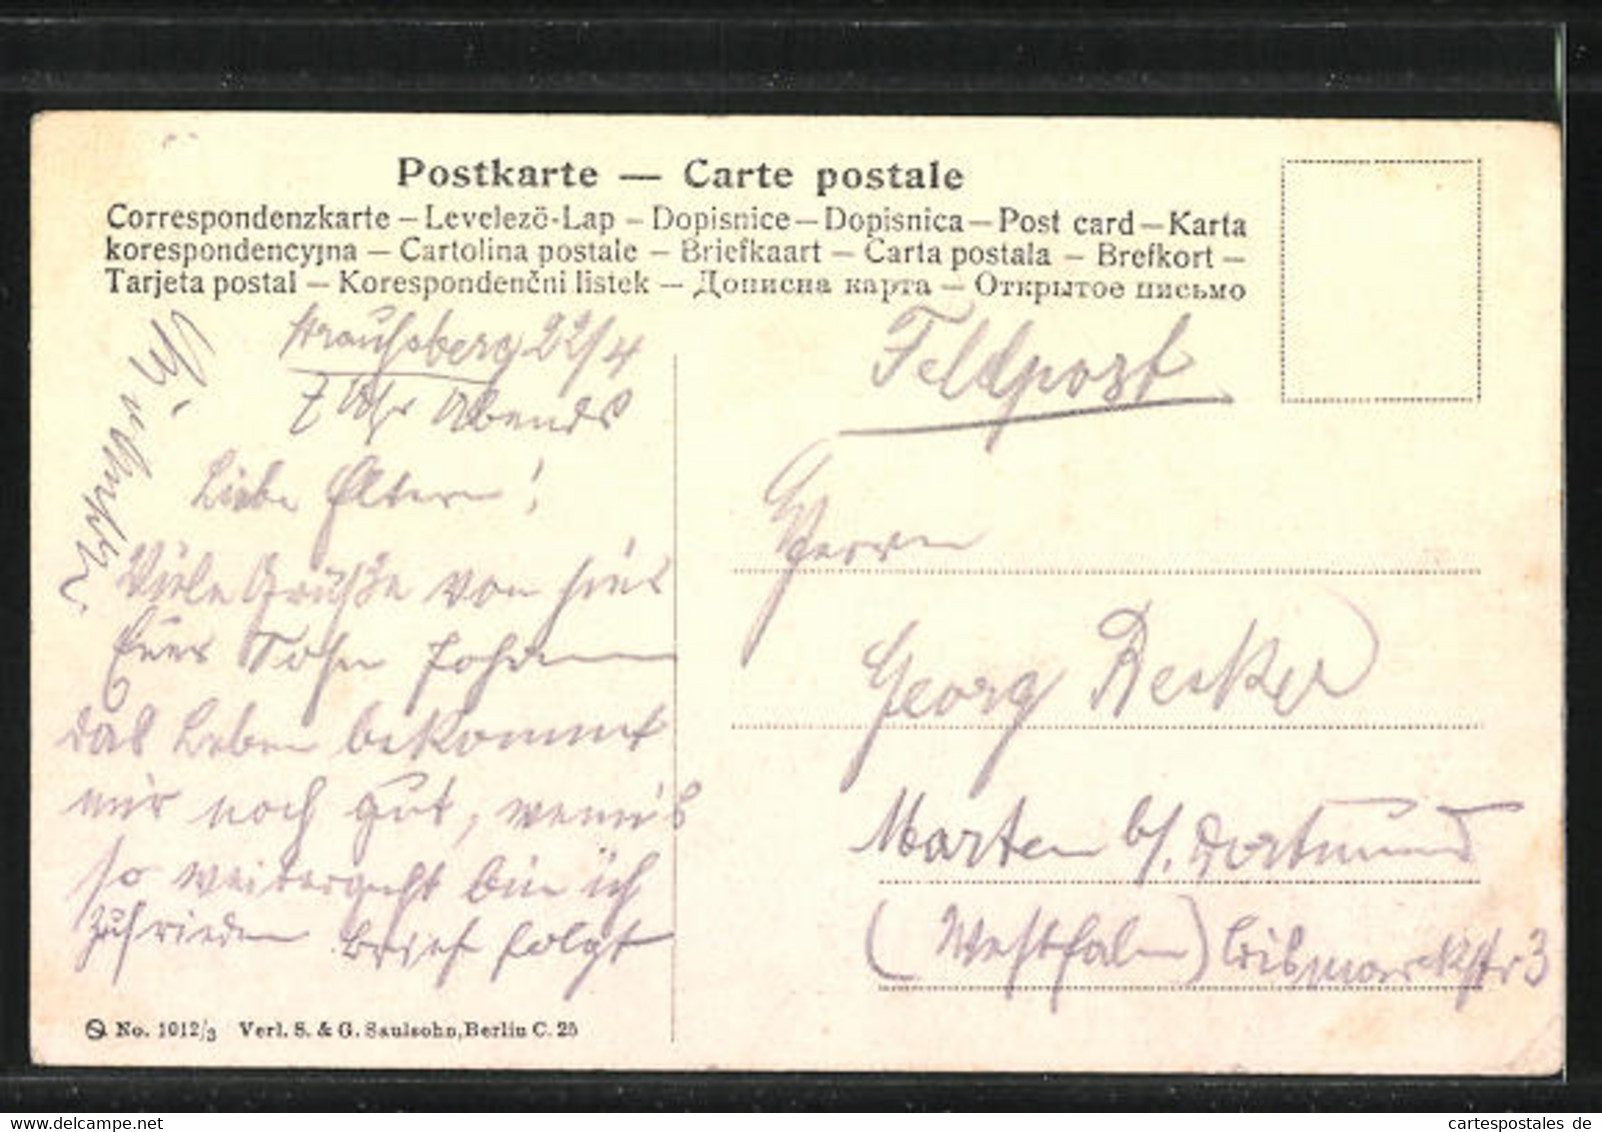 Postkarte — Carte postale
Correspondenzkarte – Levelező-Lap – Dopisnice – Dopisnica – Post card – Karta
korespondencyjna – Cartolina postale – Briefkaart – Carta postala – Brefkort –
Tarjeta postal – Korespondenčni listek – Дописна карта – Открытое письмо
Straussberg 22/4
7 Uhr Abends
Liebe Eltern!
Viele Grüße von hier
Euer Sohn
das Leben bekommt
mir noch gut, wenn's
so weitergeht bin ich
zufrieden Brief folgt
Feldpost
Herrn
Georg Decker
Marten b/. Dortmund
(Westfalen) Bismarckstr 3
No. 1012/3 Verl. S. & G. Saulsohn, Berlin C. 25
www.cartespostales.de